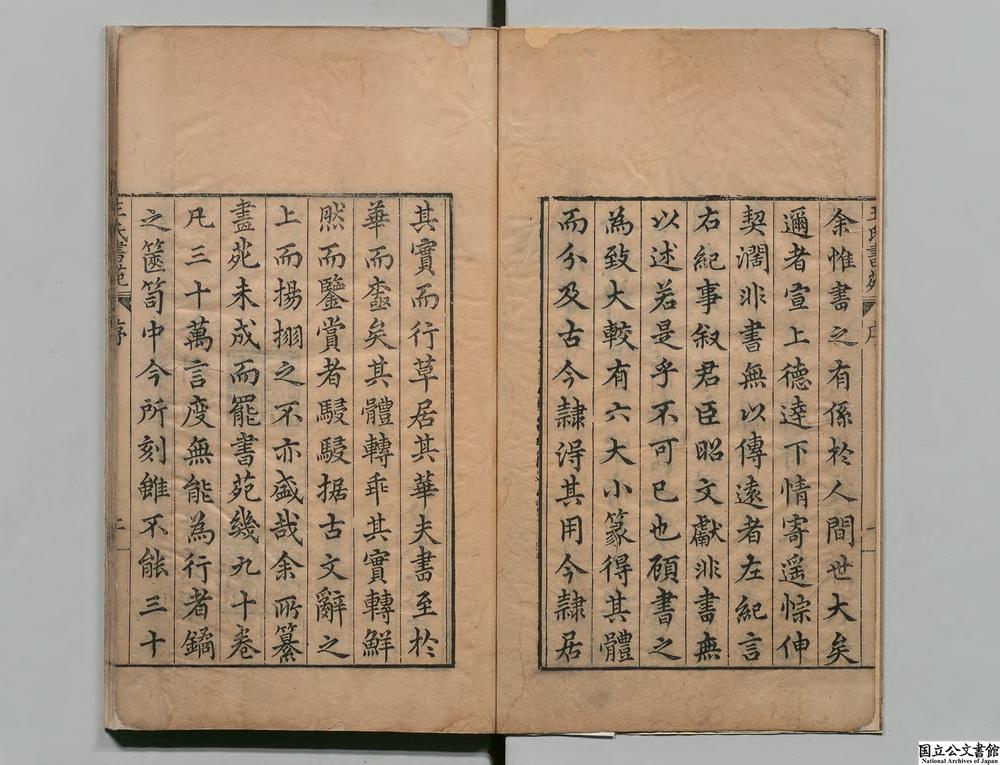 王氏書苑 序 一
余惟書之有係於人間世大矣
邇者宣上德達下情寄遥悰伸
契濶非書無以傳遠者左紀言
右紀事叙君臣昭文獻非書無
以述若是乎不可已也顧書之
為致大較有六大小篆得其體
而分及古今隷得其用今隷居
其實而行草居其華夫書至於
華而蠧矣其體轉乖其實轉鮮
然而鑒賞者駸駸据古文辭之
上而揚搦之不亦盛哉余所纂
畫苑未成而罷書苑幾九十卷
凡三十萬言度無能為行者鐍
之篋笥中今所刻雖不能三十
王氏書苑 序 二
国立公文書館
National Archives of Japan